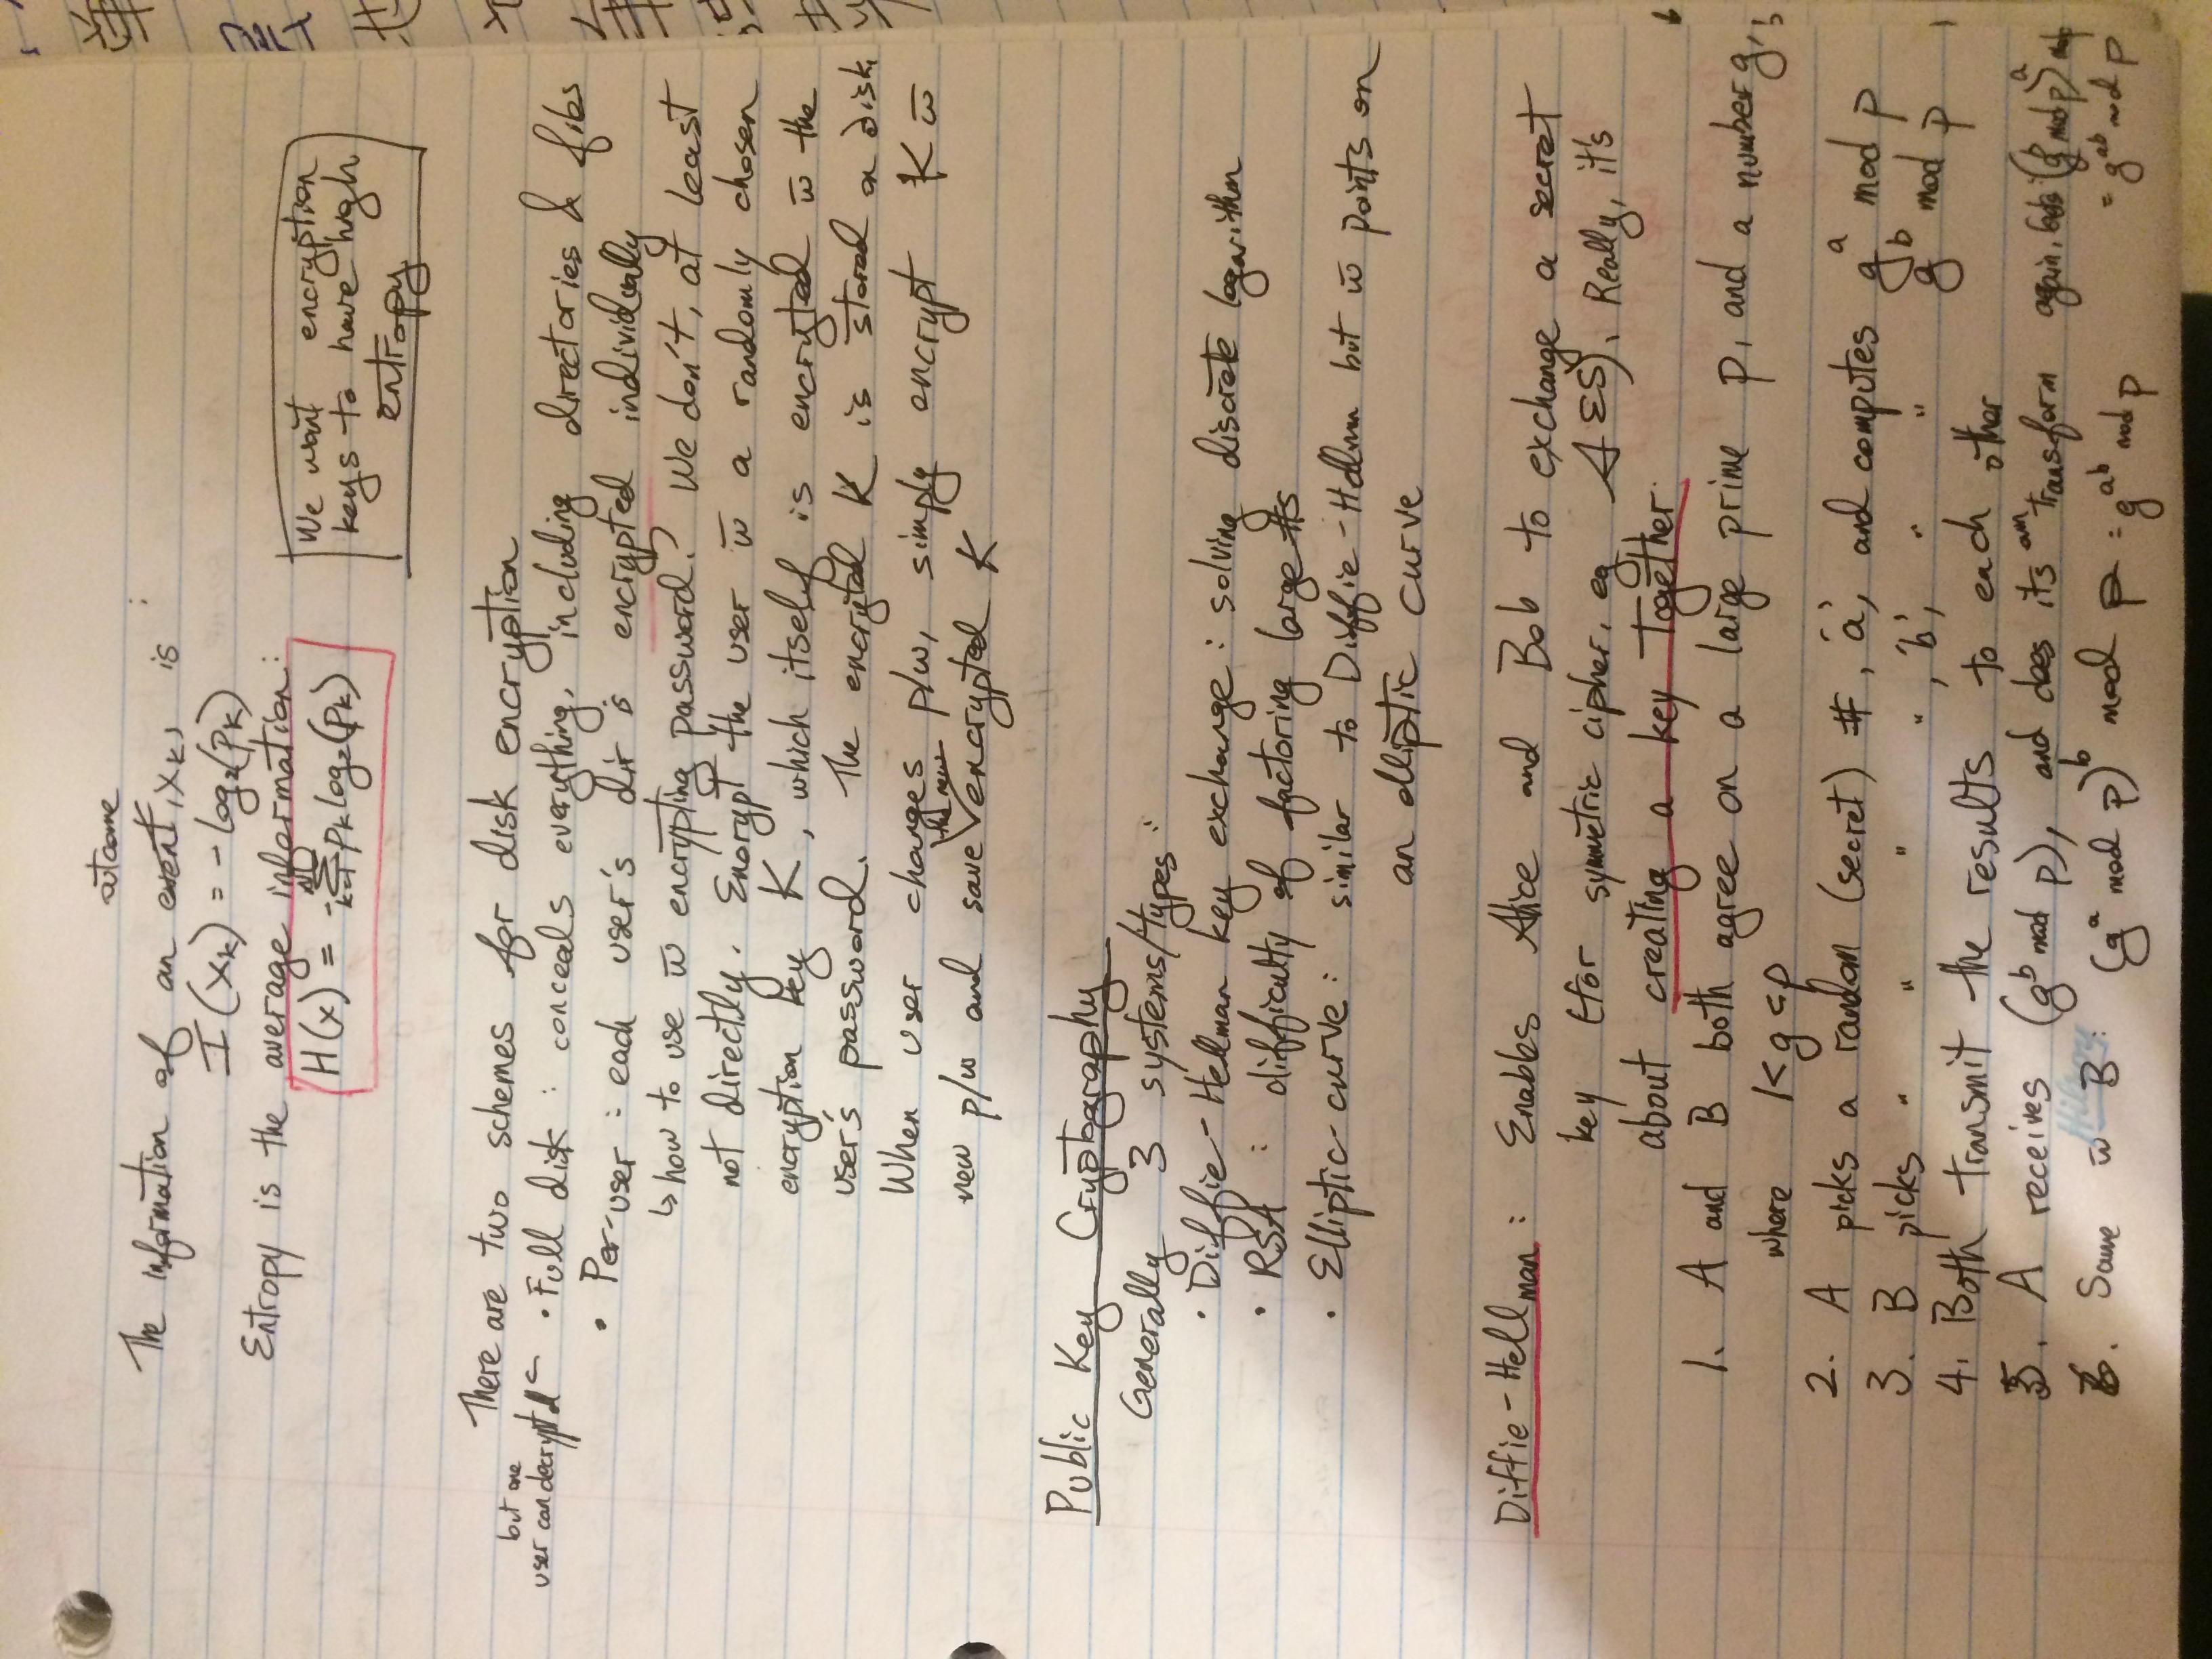 outcome
The information of an event, xk, is :
I(xk) = -log2(pk)
Entropy is the average information:
H(x) = -Σ k=1 pk log2(pk)
We want encryption
keys to have high
entropy
There are two schemes for disk encryption
but one
user can decrypt all
• Full disk : conceals everything, including directories & files
• Per-user : each user's dir is encrypted individually
↳ how to use w̄ encrypting password? We don't, at least
not directly. Encrypt the user w̄ a randomly chosen
encryption key K, which itself is encryted w̄ the
user's password. The encryted K is stored on disk.
When user changes p/w, simply encrypt K w̄
new p/w and save the new encrypted K
Public Key Cryptography
Generally 3 systems/types:
• Diffie-Hellman key exchange : solving discrete logarithm
• RSA : difficulty of factoring large #s
• Elliptic-curve : similar to Diffie-Hellman but w̄ points on
an elliptic curve
Diffie-Hellman : Enables Alice and Bob to exchange a secret
key (for symmetric cipher, eg AES). Really, it's
about creating a key together.
1. A and B both agree on a large prime p, and a number g,
where 1<g<p
2. A picks a random (secret) #, 'a', and computes g^a mod p
3. B picks " " " ", 'b', " " g^b mod p
4. Both transmit the results to each other
5. A receives (g^b mod p), and does its own transform again, (g^b mod p)^a mod p
= g^ab mod p
6. Same w̄ B: (g^a mod p)^b mod p = g^ab mod p
Hilroy